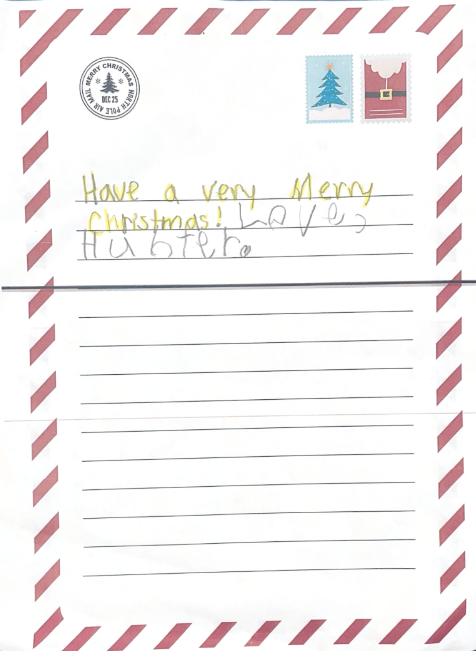 MERRY CHRISTMAS
DEC 25
NORTH POLE AIR MAIL
Have a very Merry
Christmas! Love,
Hunter.